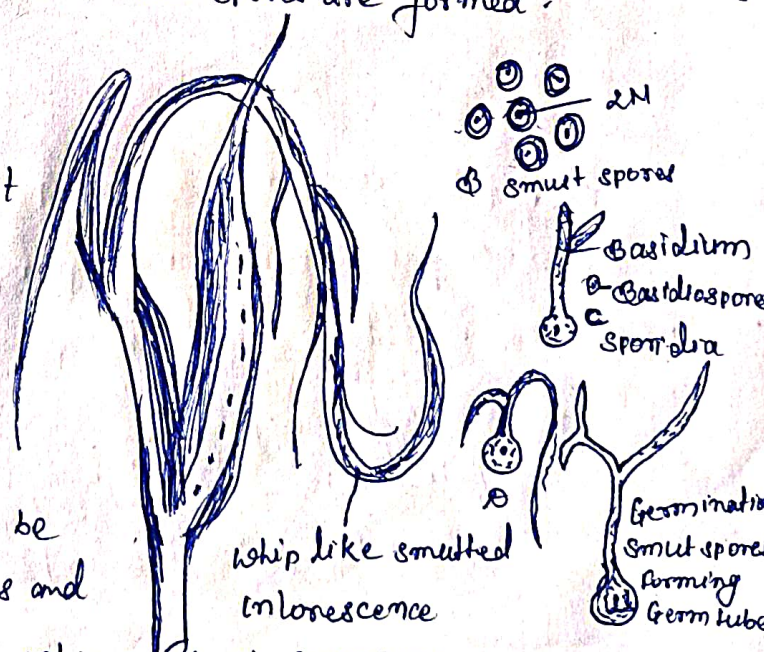 are formed.
2N
B smut spores
t
Basidium
Basidiospore
C
sporidia
D
be
s and
whip like smutted
Inlorescence
Germinatio
smut spores
Forming
Germ tube